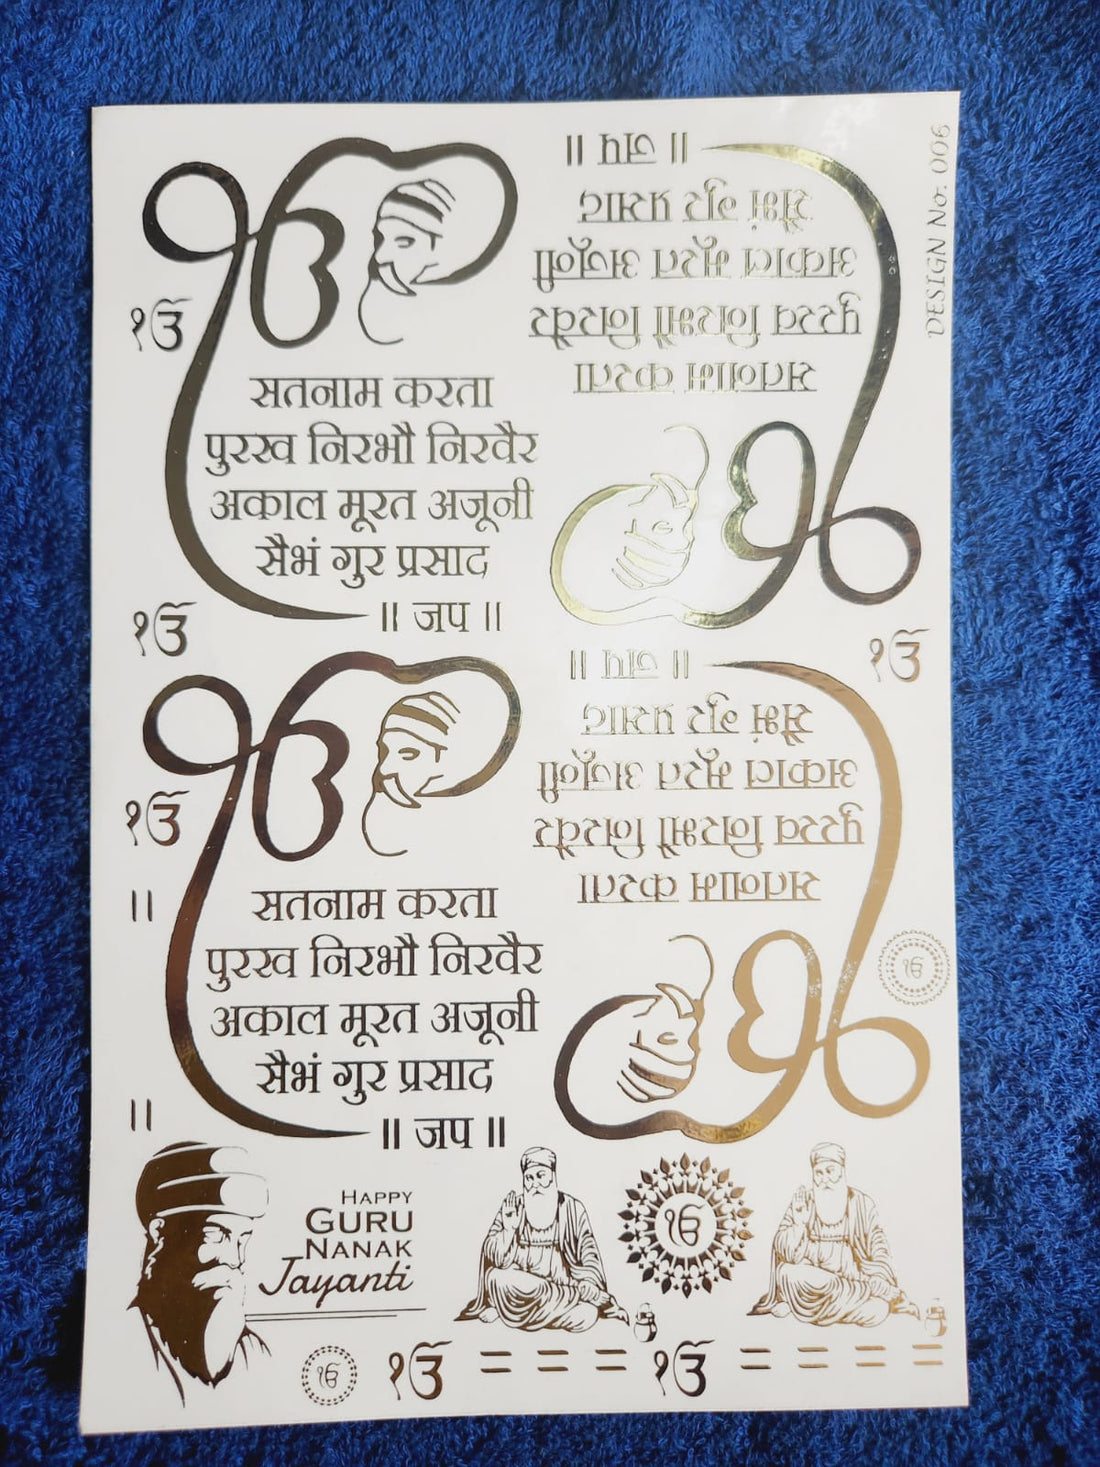 १ॐ
सतनाम करता
पुरख निरभौ निरवैर
अकाल मूरत अजूनी
सैभं गुर प्रसाद
॥ जप ॥
॥ जप ॥
सैभं गुर प्रसाद
अकाल मूरत अजूनी
पुरख निरभौ निरवैर
सतनाम करता
DESIGN No. 006
१ॐ
१ॐ
सतनाम करता
पुरख निरभौ निरवैर
अकाल मूरत अजूनी
सैभं गुर प्रसाद
॥ जप ॥
॥ जप ॥
सैभं गुर प्रसाद
अकाल मूरत अजूनी
पुरख निरभौ निरवैर
सतनाम करता
१ॐ
॥
॥
HAPPY
GURU
NANAK
Jayanti
ੴ
ੴ
ੴ
१ॐ = = = १ॐ = = = =